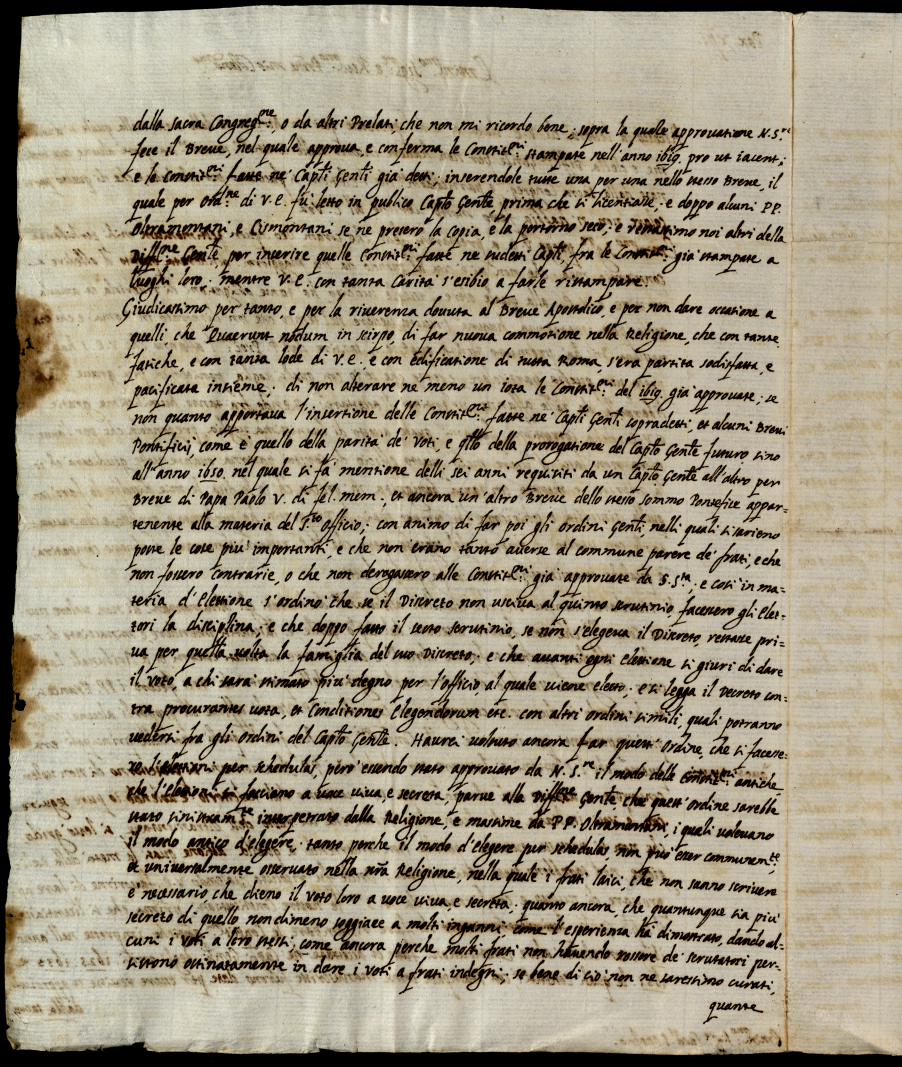 dalla sacra Congreg.ne, o da altri Prelati, che non mi ricordo bene; sopra la quale approvatione N.S.re
fece il Breve, nel quale approva, e conferma le Constit.ni stampate nell'anno 1619. pro ut iacent;
e le Constit.ni fatte ne' Capti Genti già detti; inserendole tutte una per una nello stesso Breve, il
quale per Ord.ne di V.E. fù letto in publico Capto Gente prima che si licentiasse. e doppo alcuni PP.
Oltramontani, e Cismontani se ne presero la copia, e la portorno seco; e restassimo noi altri della
Diff.ne Gente, per inserire quelle Constit.ni fatte ne sudetti Capti, fra le Constit.ni già stampate a
luoghi loro. mentre V.E. con tanta Carità s'esibì a farle ristampare.
Giudicassimo per tanto, e per la riverenza dovuta al Breve Apostolico, e per non dare occasione a
quelli, che Quaerunt nodum in scirpo, di far nuova commotione nella Religione, che con tante
fatiche, e con tanta lode di V.E. e con edificatione di tutta Roma, s'era partita sodisfatta, e
pacificata insieme; di non alterare ne meno un iota le Constit.ni del 1619. già approvate; se
non quanto apportava l'insertione delle Constit.ni fatte ne' Capti Genti sopradetti, et alcuni Brevi
Pontificij, come è quello della parità de' voti, e qllo della prorogatione del Capto Gente futuro sino
all'anno 1650. nel quale si fa mentione delli sei anni requisiti da un Capto Gente all'altro per
Breve di Papa Paolo V. di fel. mem., et ancora un'altro Breve dello stesso sommo Pontefice appar=
tenente alla materia del S.to officio; con animo di far poi gli ordini Genti, nelli quali si sariano
poste le cose più importanti, e che non erano tanto averse al commune parere de' frati, e che
non fossero contrarie, o che non derogassero alle Constit.ni già approvate da S.S.tà. e così in ma=
teria d'Elettione s'ordinò che se il Discreto non usciva al quinto scrutinio, facessero gli Elet=
tori la disciplina; e che doppo fatto il sesto scrutinio, se non s'elegeva il Discreto, restasse pri=
va per quella volta la famiglia del suo Discreto; e che avanti ogni elettione si giuri di dare
il voto, a chi sarà stimato più degno per l'officio al quale viene eletto; e si legga il Decreto con=
tra procurantes vota, et Conditiones Elegendorum etc. con altri ordini simili, quali potranno
vedersi fra gli ordini del Capto Gente. Haurei voluto ancora far quest'ordine, che si facesse=
ro l'elettioni per schedulas, però essendo stato approvato da N.S.re il modo delle Constit.ni antiche
che l'elettioni si facciano a voce viva, e secreta, parve alla Diff.ne Gente che quest'ordine sarebbe
stato sinistram.te interpretato dalla Religione, e massime da PP. Oltramontani, i quali volevano
il modo antico d'elegere. tanto perche il modo d'elegere per schedulas, non può esser communem.te
et universalmente osservato nella nra Religione, nella quale i frati laici, che non sanno scrivere
è necessario, che dieno il voto loro a voce viva, e secreta; quanto ancora, che quantunque sia più
secreto di quello nondimeno soggiace a molti inganni come l'esperienza ha dimostrato, dando al=
cuni i voti a loro stessi, come ancora perche molti frati non havendo rossore de' scrutatori per=
sistono ostinatamente in dare i voti a frati indegni; se bene di ciò non ne saressimo curati,
quante